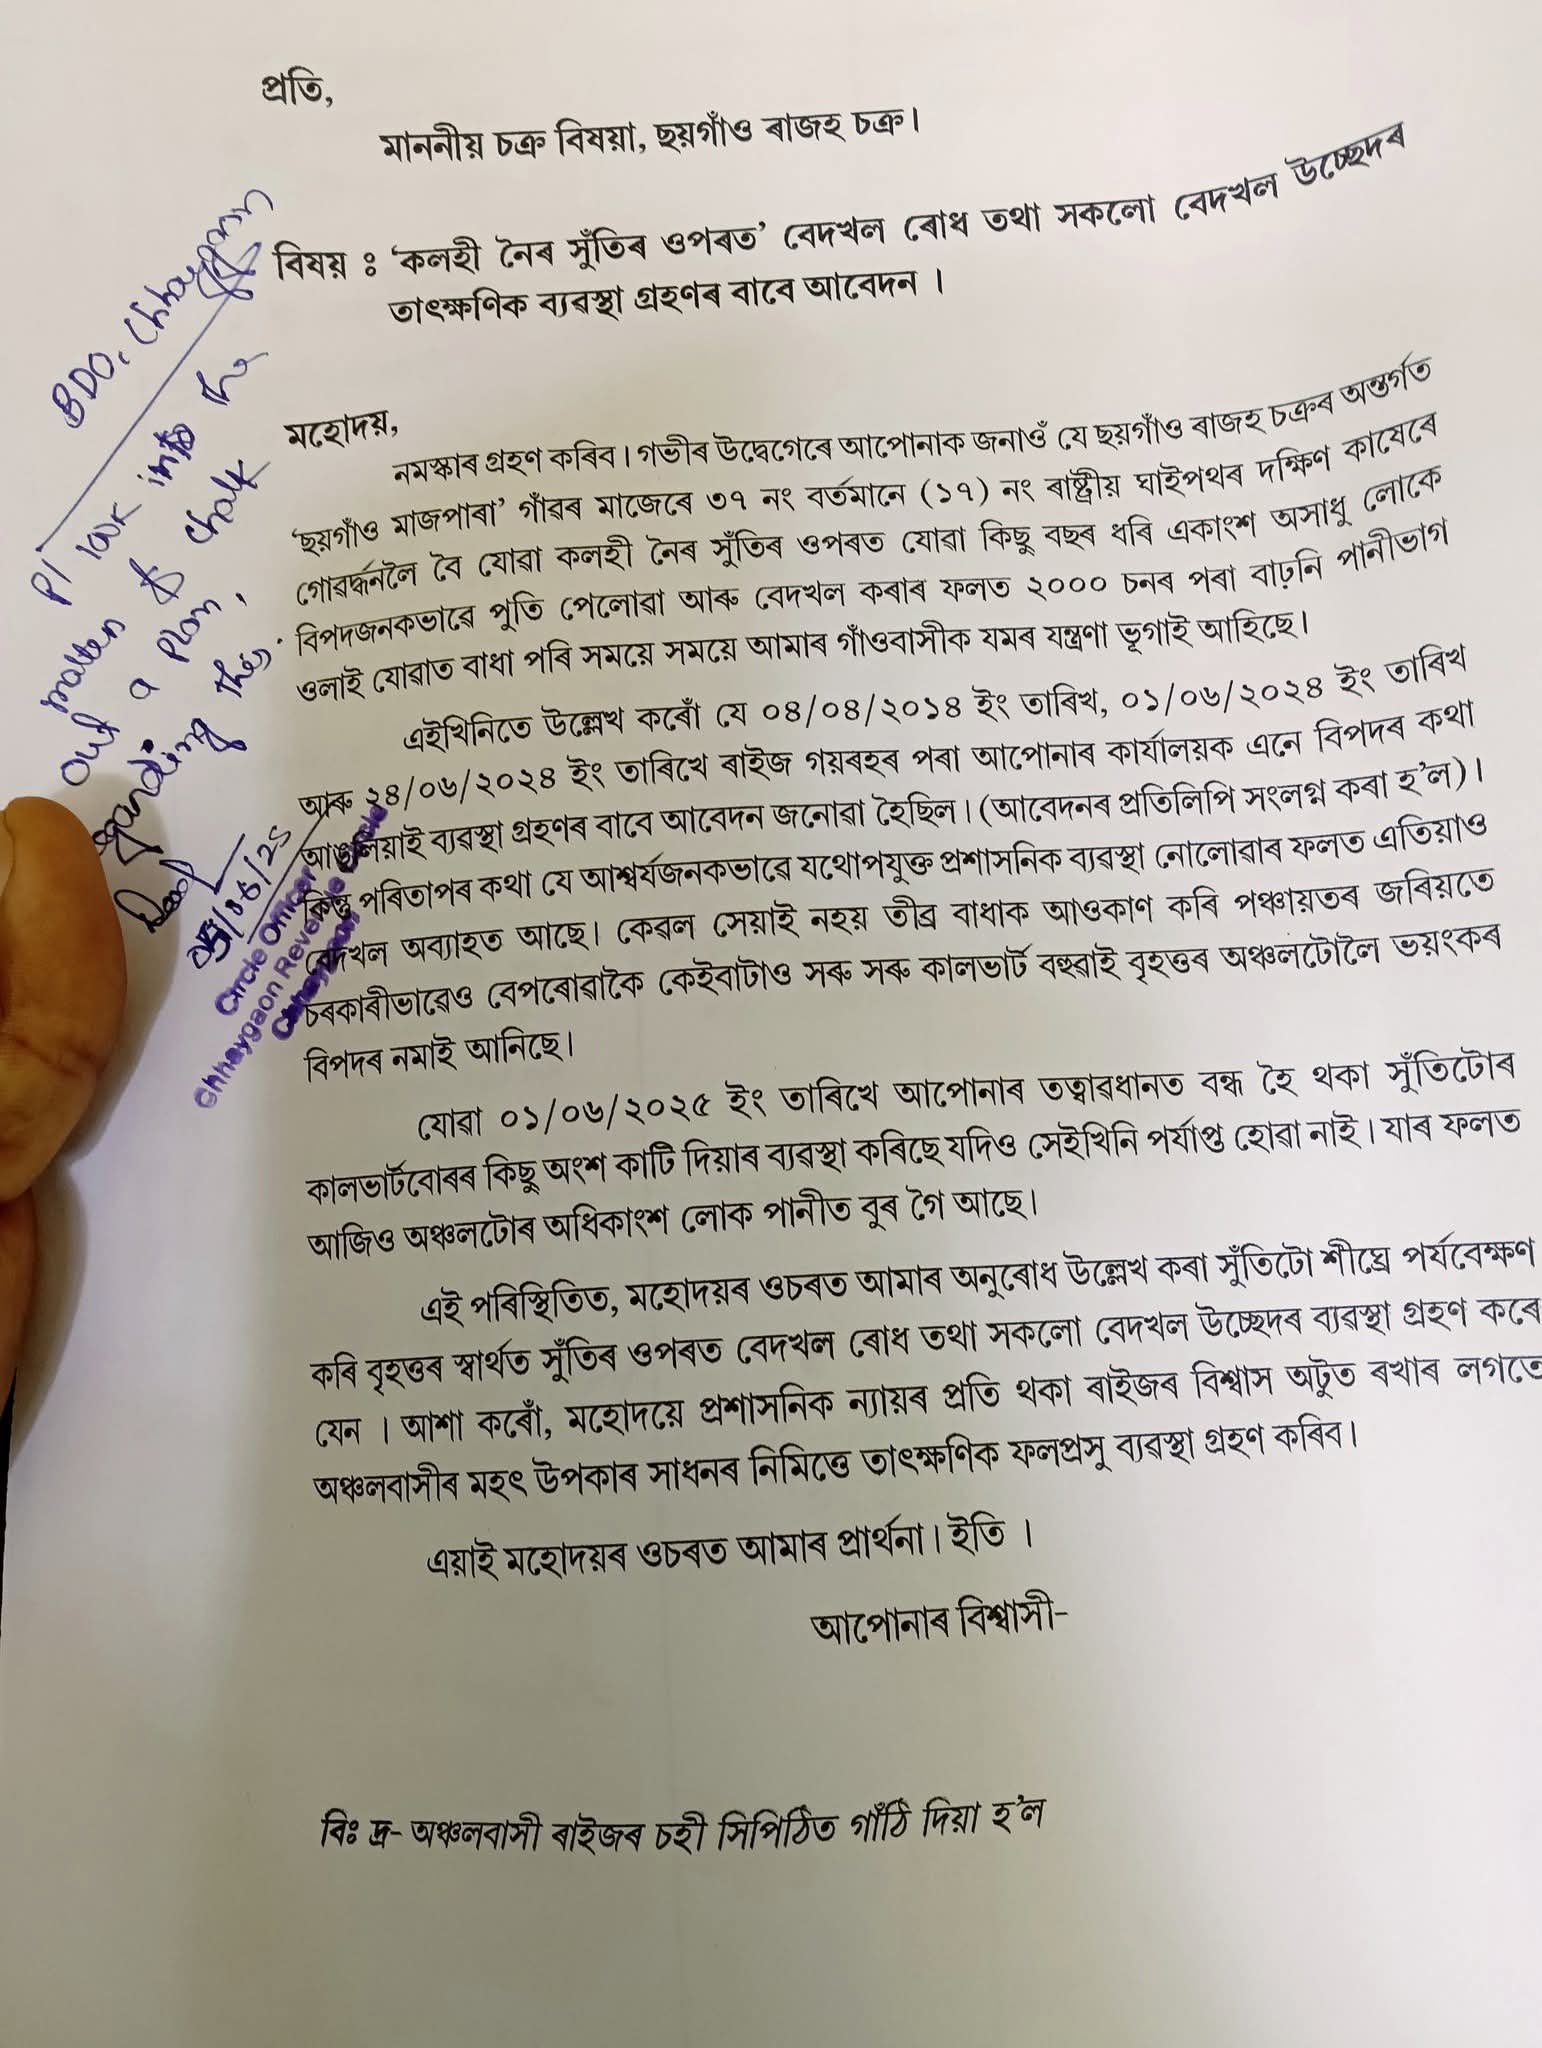 প্ৰতি,
মাননীয় চক্ৰ বিষয়া, ছয়গাঁও ৰাজহ চক্ৰ।
বিষয় ঃ ‘কলহী নৈৰ সুঁতিৰ ওপৰত’ বেদখল ৰোধ তথা সকলো বেদখল উচ্ছেদৰ
তাৎক্ষণিক ব্যৱস্থা গ্ৰহণৰ বাবে আবেদন ।
BDO, Chhaygaon
Pl look into the
matter & chalk
out a plan
regarding the
05/06/25
Circle Officer
Chhaygaon Revenue Circle
মহোদয়,
নমস্কাৰ গ্ৰহণ কৰিব। গভীৰ উদ্বেগেৰে আপোনাক জনাওঁ যে ছয়গাঁও ৰাজহ চক্ৰৰ অন্তৰ্গত
‘ছয়গাঁও মাজপাৰা’ গাঁৱৰ মাজেৰে ৩৭ নং বৰ্তমানে (১৭) নং ৰাষ্ট্ৰীয় ঘাইপথৰ দক্ষিণ কাষেৰে
গোৱৰ্দ্ধনলৈ বৈ যোৱা কলহী নৈৰ সুঁতিৰ ওপৰত যোৱা কিছু বছৰ ধৰি একাংশ অসাধু লোকে
বিপদজনকভাৱে পুতি পেলোৱা আৰু বেদখল কৰাৰ ফলত ২০০০ চনৰ পৰা বাঢ়নি পানীভাগ
ওলাই যোৱাত বাধা পৰি সময়ে সময়ে আমাৰ গাঁওবাসীক যমৰ যন্ত্ৰণা ভূগাই আহিছে।
এইখিনিতে উল্লেখ কৰোঁ যে ০৪/০৪/২০১৪ ইং তাৰিখ, ০১/০৬/২০২৪ ইং তাৰিখ
আৰু ২৪/০৬/২০২৪ ইং তাৰিখে ৰাইজ গয়ৰহৰ পৰা আপোনাৰ কাৰ্যালয়ক এনে বিপদৰ কথা
আঙুলিয়াই ব্যৱস্থা গ্ৰহণৰ বাবে আবেদন জনোৱা হৈছিল। (আবেদনৰ প্ৰতিলিপি সংলগ্ন কৰা হ’ল)।
কিন্তু পৰিতাপৰ কথা যে আশ্বৰ্যজনকভাৱে যথোপযুক্ত প্ৰশাসনিক ব্যৱস্থা নোলোৱাৰ ফলত এতিয়াও
বেদখল অব্যাহত আছে। কেৱল সেয়াই নহয় তীব্ৰ বাধাক আওকাণ কৰি পঞ্চায়তৰ জৰিয়তে
চৰকাৰীভাৱেও বেপৰোৱাকৈ কেইবাটাও সৰু সৰু কালভাৰ্ট বহুৱাই বৃহত্তৰ অঞ্চলটোলৈ ভয়ংকৰ
বিপদৰ নমাই আনিছে।
যোৱা ০১/০৬/২০২৫ ইং তাৰিখে আপোনাৰ তত্বাৱধানত বন্ধ হৈ থকা সুঁতিটোৰ
কালভাৰ্টবোৰৰ কিছু অংশ কাটি দিয়াৰ ব্যৱস্থা কৰিছে যদিও সেইখিনি পৰ্যাপ্ত হোৱা নাই। যাৰ ফলত
আজিও অঞ্চলটোৰ অধিকাংশ লোক পানীত বুৰ গৈ আছে।
এই পৰিস্থিতিত, মহোদয়ৰ ওচৰত আমাৰ অনুৰোধ উল্লেখ কৰা সুঁতিটো শীঘ্ৰে পৰ্যবেক্ষণ
কৰি বৃহত্তৰ স্বাৰ্থত সুঁতিৰ ওপৰত বেদখল ৰোধ তথা সকলো বেদখল উচ্ছেদৰ ব্যৱস্থা গ্ৰহণ কৰে
যেন । আশা কৰোঁ, মহোদয়ে প্ৰশাসনিক ন্যায়ৰ প্ৰতি থকা ৰাইজৰ বিশ্বাস অটুত ৰখাৰ লগতে
অঞ্চলবাসীৰ মহৎ উপকাৰ সাধনৰ নিমিত্তে তাৎক্ষণিক ফলপ্ৰসু ব্যৱস্থা গ্ৰহণ কৰিব।
এয়াই মহোদয়ৰ ওচৰত আমাৰ প্ৰাৰ্থনা। ইতি ।
আপোনাৰ বিশ্বাসী-
বিঃ দ্ৰ- অঞ্চলবাসী ৰাইজৰ চহী সিপিঠিত গাঁঠি দিয়া হ’ল